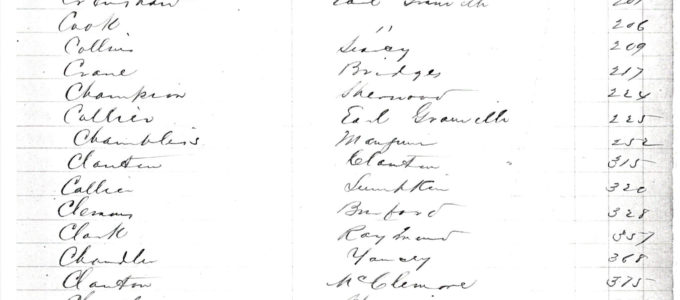 Crenshaw Earl Granville 201
Cook " 206
Collins Seavey 209
Crane Bridges 217
Champion Sherwood 224
Collier Earl Granville 225
Chambless Mangum 252
Clanton Clanton " 315
Collier Lumpkin 320
Clemons Buford 328
Clark Raymond 357
Chandler Yancey 368
Clanton McClemore 375